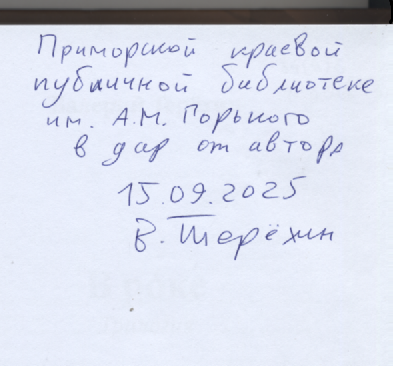 Приморской краевой
публичной библиотеке
им. А.М. Горького
в дар от автора
15.09.2025
В. Терёхин